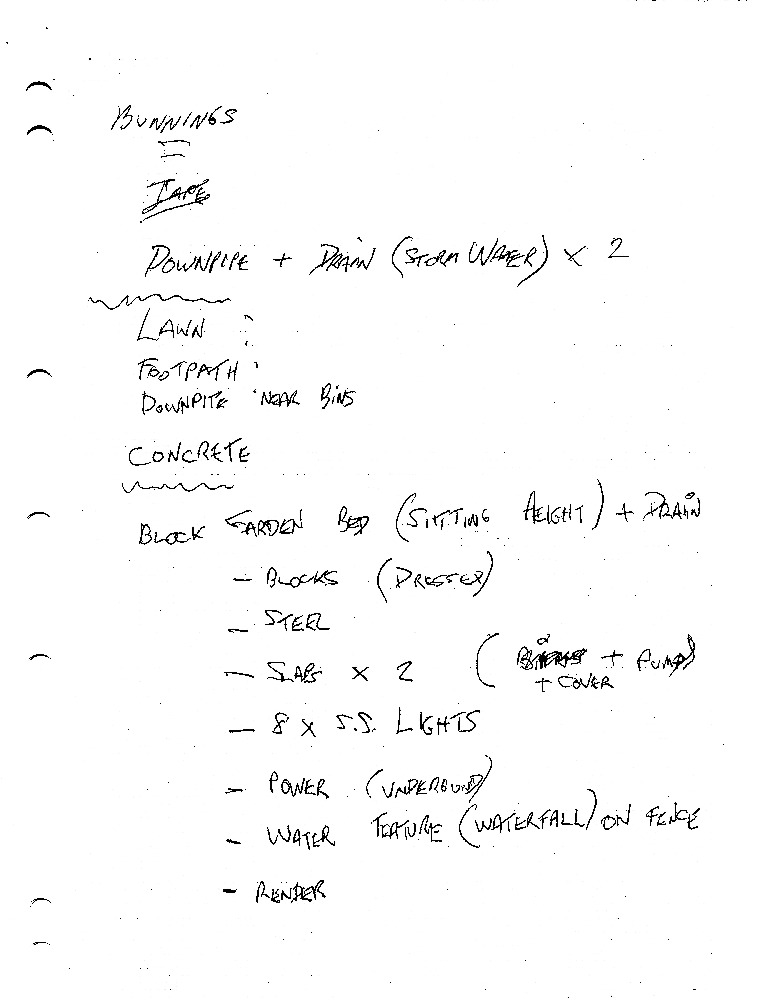 BUNNINGS
TAPE
DOWNPIPE + DRAIN (STORM WATER) X 2
LAWN :
FOOTPATH :
DOWNPIPE NEAR BINS
CONCRETE
BLOCK GARDEN BED (SITTING HEIGHT) + DRAIN
- BLOCKS (DRESSED)
- STEEL
- SLABS X 2 ( + PUMP)
+ COVER
- 8 X S.S. LIGHTS
- POWER
- WATER FEATURE (WATERFALL) ON FENCE
- RENDER